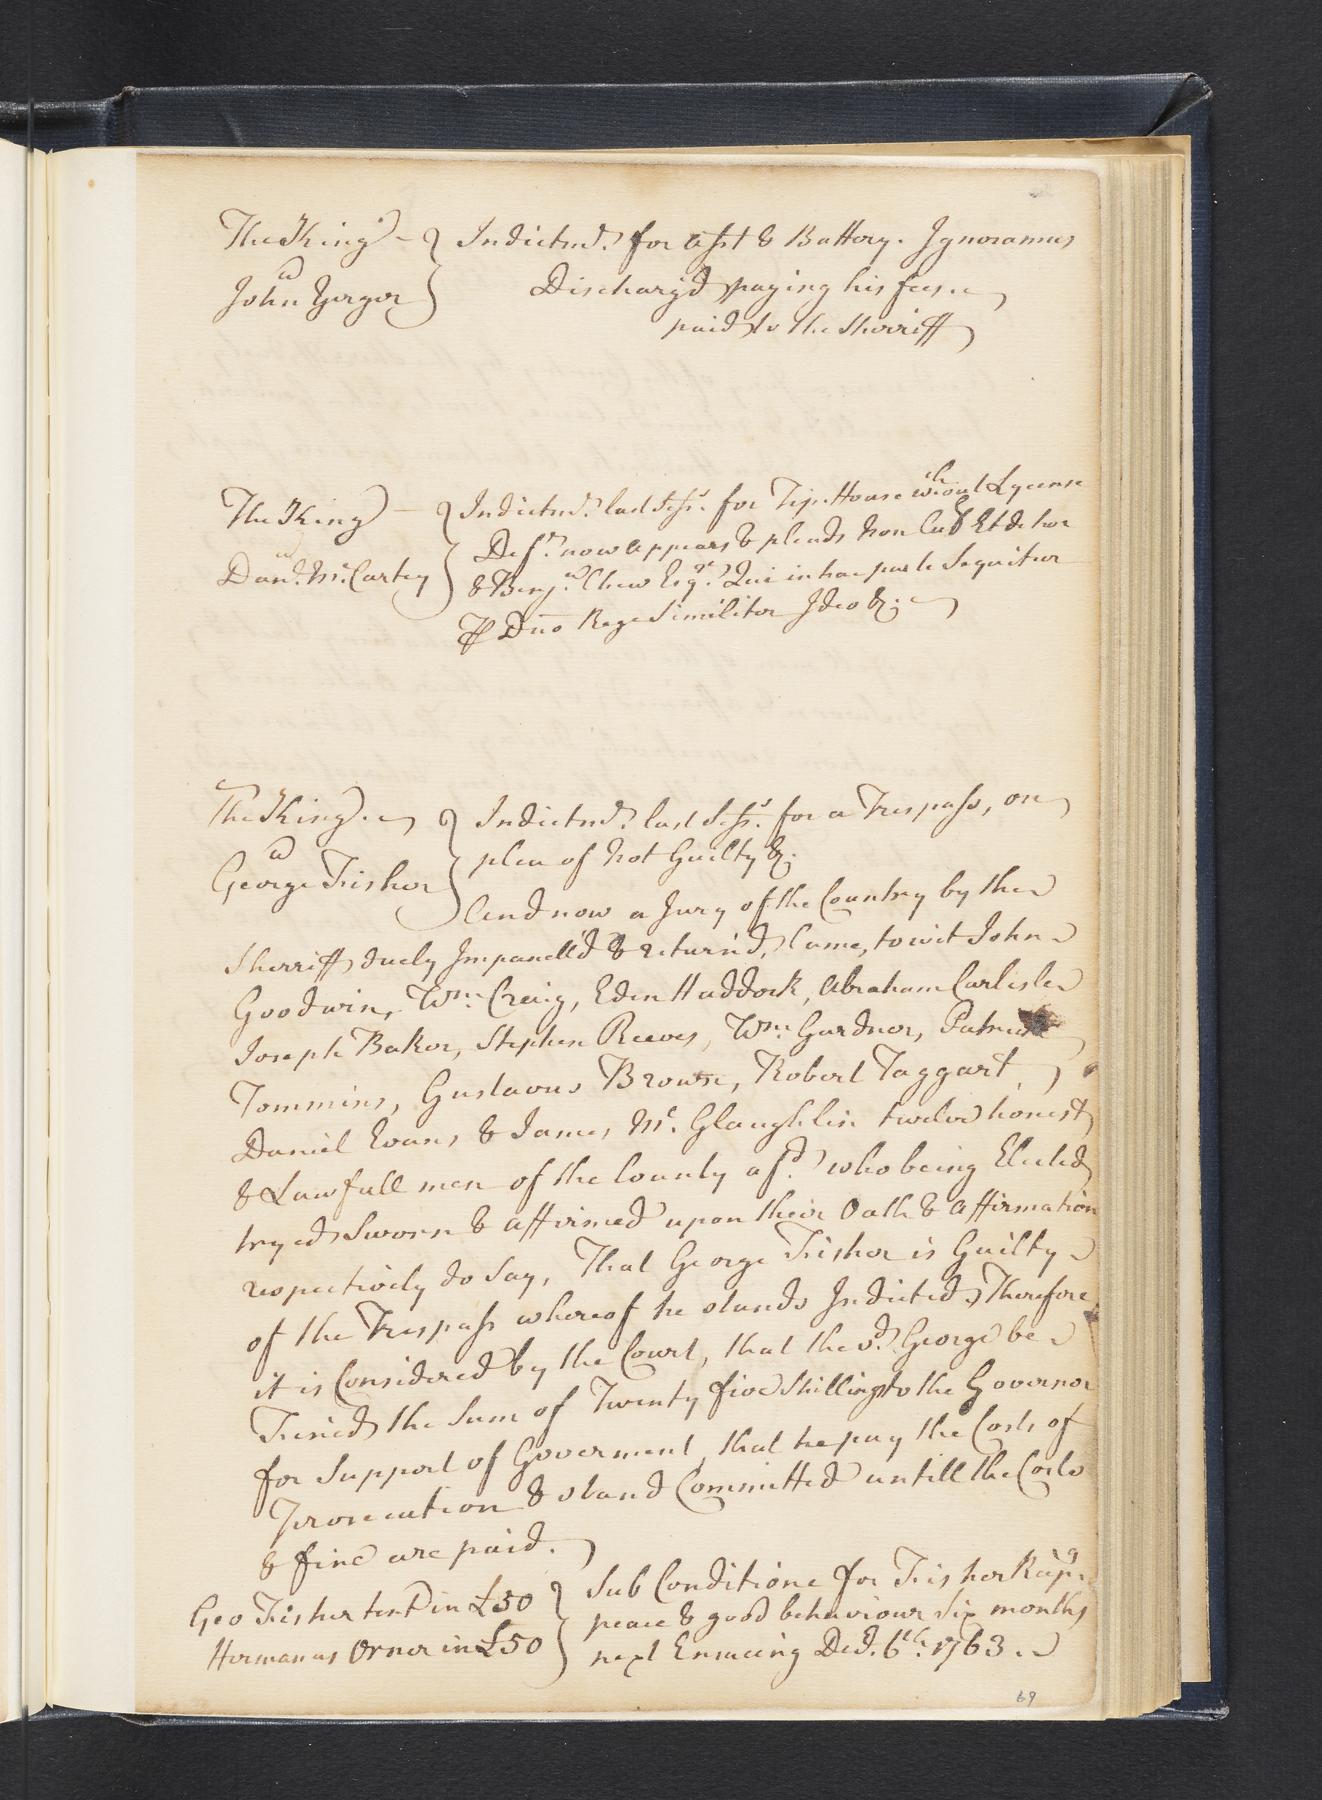 The King } Indictmt. for Asst & Battery. Ignoramus
vs
John Yerger } Discharg'd paying his fees.
paid to the Sherriff
The King } Indictmt. last Sess. for Tip. House without Lycense
vs
Danl. McCartey } Deft. now appears & pleads Non Cul & Et de hoc
& Benjn. Chew Esqr. Qui in hac parte Sequitur
P Dno Rege Similiter Ideo &c.
The King } Indictmt. last Sess. for a Trespass, on
vs plea of Not Guilty &c.
George Fisher } And now a Jury of the Country by the
Sherriff duely Impanell'd & return'd, Came, to wit John
Goodwin, Wm. Craig, Eden Haddock, Abraham Carlisle
Joseph Baker, Stephen Reeves, Wm. Gardner, Patrick
Tommins, Gustavus Browne, Robert Taggart,
Daniel Evans & James Mc. Glaughlin twelve honest
& Lawfull men of the County afd. who being Elected
tryed Sworn & affirmed upon their Oath & Affirmation
respectively do Say, That George Fisher is Guilty
of the Trespass whereof he stands Indicted, Therefore
it is Considered by the Court, that the sd. George be
Fined the Sum of Twenty five Shillings to the Governor
for Support of Goverment, that he pay the Costs of
Prosecution & stand Committed untill the Costs
& fine are paid.
Geo Fisher tent in £50 } Sub Conditione for Fisher Keepg.
Hermanus Orner in £50 } peace & good behaviour Six months
next Ensueing Ded. 6th. 1763.
69